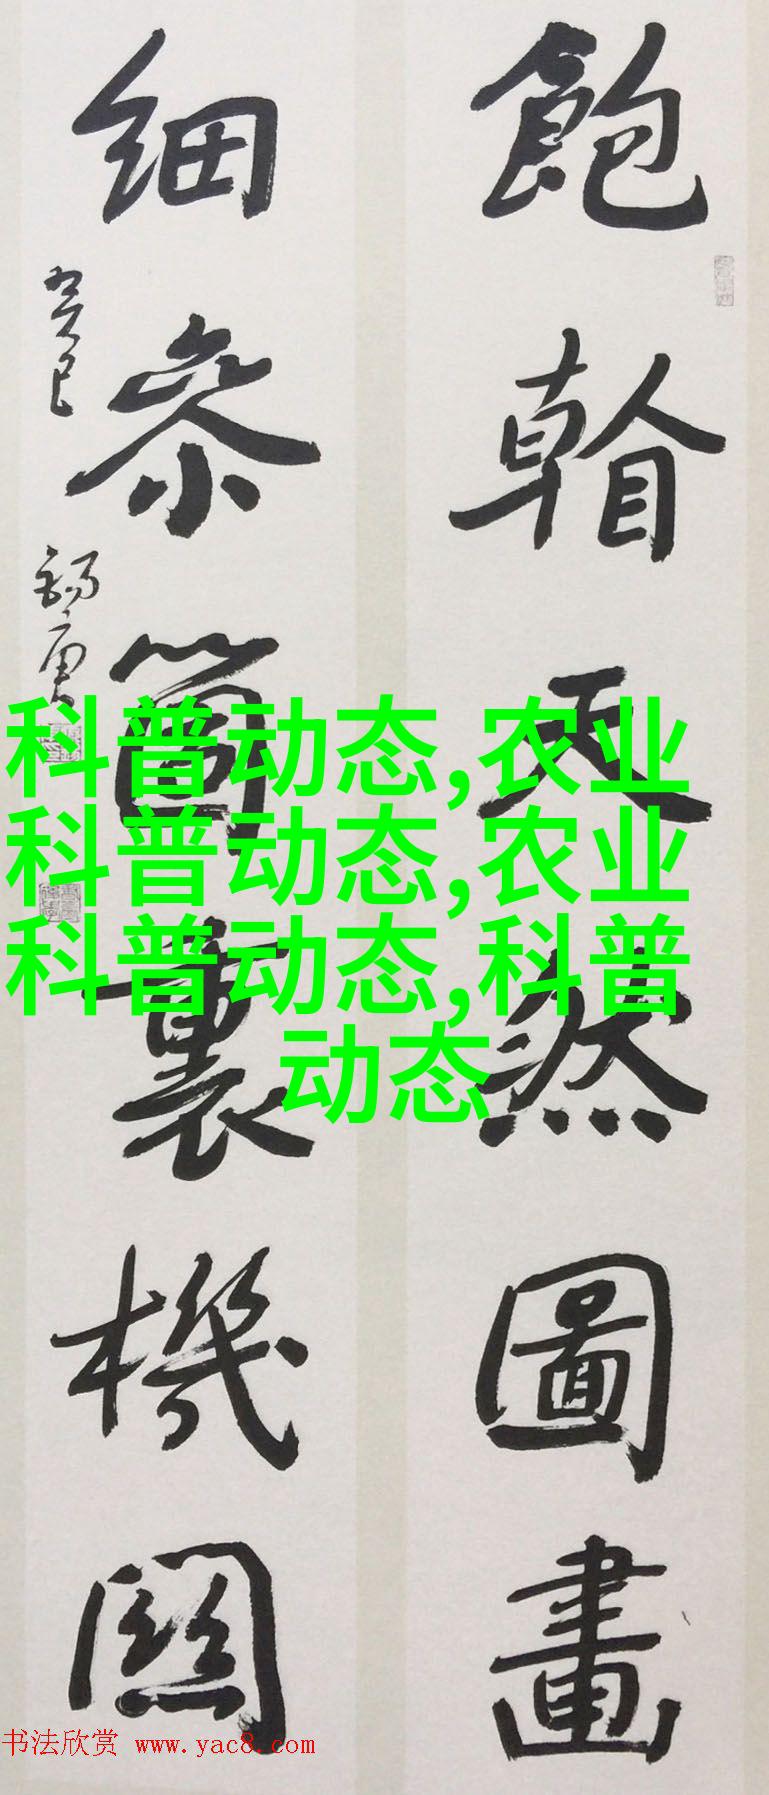 飽䪿天然圖畫
細参箇裏機関
癸巳
錫庚
科普动态,农业
科普动态,农业
科普动态,科普
动态
书法欣赏 www.yac8.com